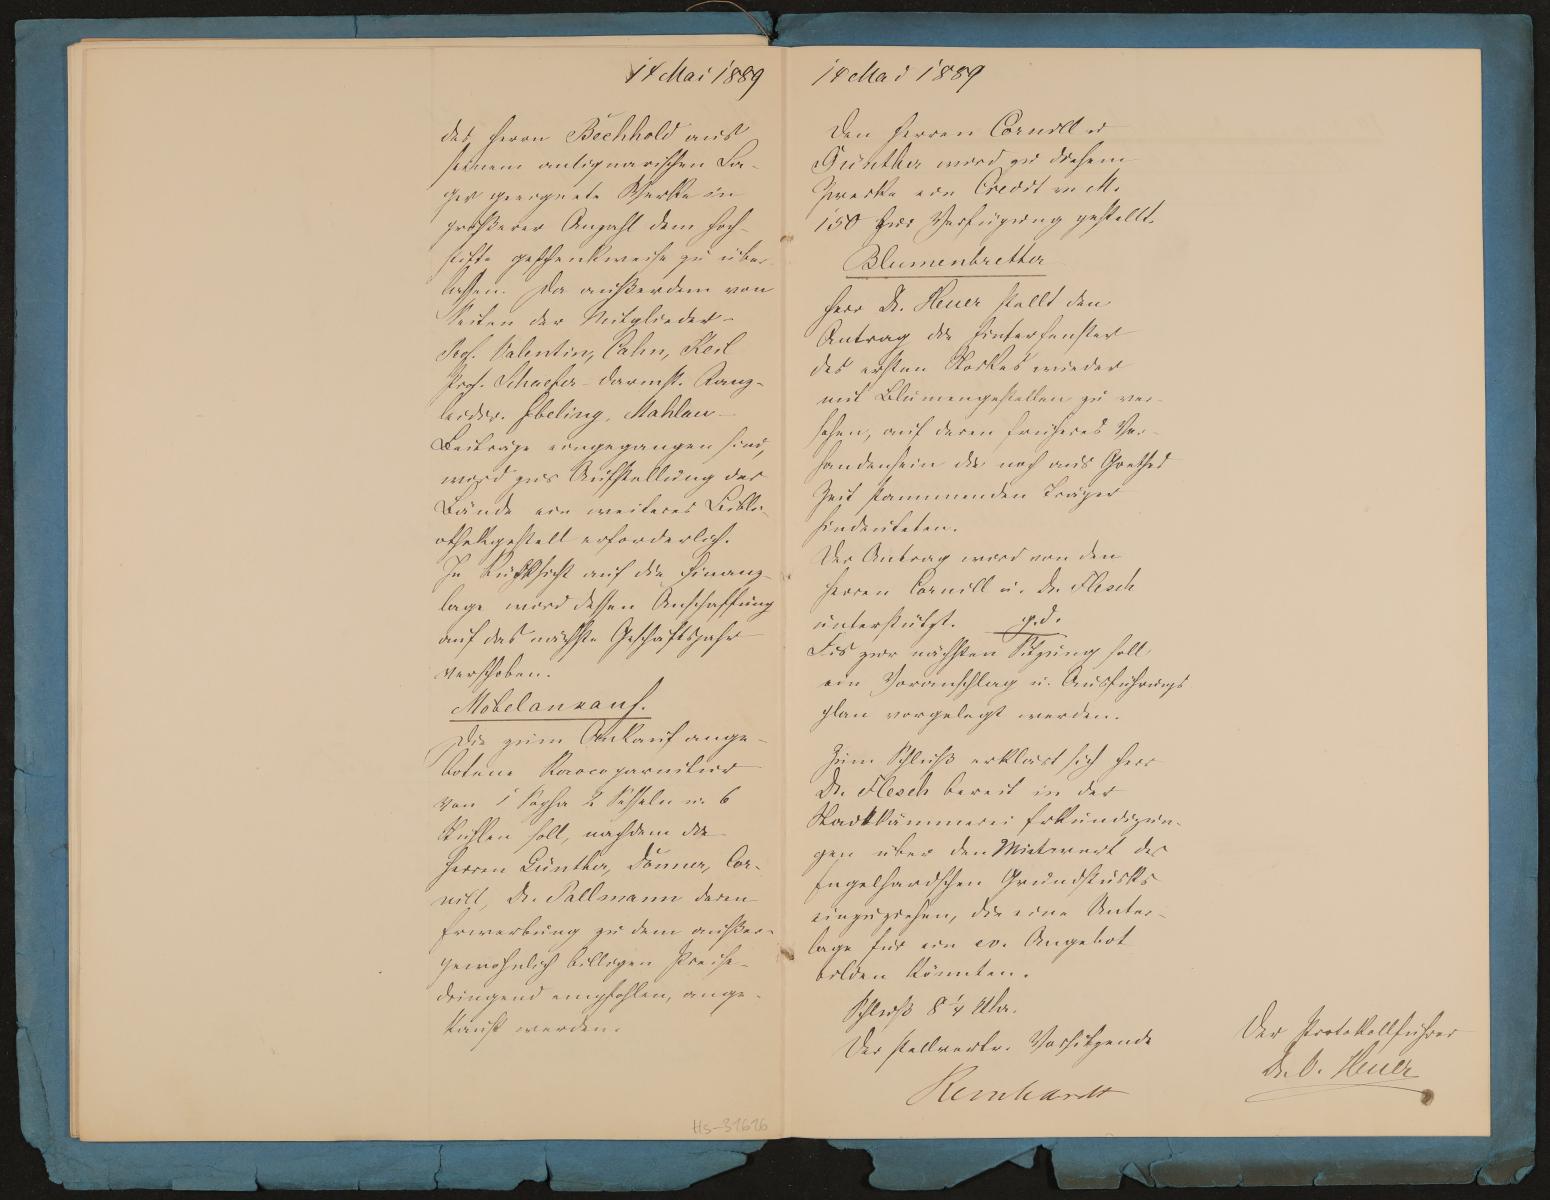 14 Mai 1889
des Herrn Bechhold aus
seinem antiquarischen La-
ger geeignete Werke in
größerer Anzahl dem Hoch-
stifte geschenkweise zu über-
lassen. Da außerdem von
Seiten der Mitglieder
Prof. Valentin, Cahn, Keil
Prof. Schaefer-Darmst. Kanz-
leidir. Ebeling, Mahlau
Beiträge eingegangen sind,
wird zur Aufstellung der
Bände ein weiteres Biblio-
thekgestell erforderlich.
In Rücksicht auf die Finanz-
lage wird dessen Anschaffung
auf das nächste Geschäftsjahr
verschoben.
Möbelankauf.
Die zum Ankauf ange-
botene Rococogarnitur
von 1 Sopha 2 Sesseln u. 6
Stühlen soll, nachdem die
Herren Günther, Donner, Cor-
nill, Dr. Pallmann deren
Erwerbung zu dem außer-
gewöhnlich billigen Preise
dringend empfohlen, ange-
kauft werden.
Hs-31616
14 Mai 1889
Den Herren Cornill u
Günther wird zu diesem
Zwecke ein Credit v. M.
150 zur Verfügung gestellt.
Blumenbretter
Herr Dr. Heuer stellt den
Antrag die Hinterfenster
des ersten Stockes wieder
mit Blumengestellen zu ver-
sehen, auf deren früheres Vor-
handensein die noch aus Goethes
Zeit stammenden Träger
hindeuteten.
Der Antrag wird von den
Herren Cornill u. Dr. Flesch
unterstützt.
Bis zur nächsten Sitzung soll
ein Voranschlag u. Ausführungs
plan vorgelegt werden.
Zum Schluß erklärt sich Herr
Dr. Flesch bereit in der
Stadtkämmerei Erkundigun-
gen über den Mietswert des
Engelhardschen Grundstücks
einzuziehen, die eine Unter-
lage für ein ev. Angebot
bilden könnten.
Schluß 8 1/4 Uhr.
Der stellvertr. Vorsitzende
Reinhardt
Der Protokollführer
Dr. O. Heuer